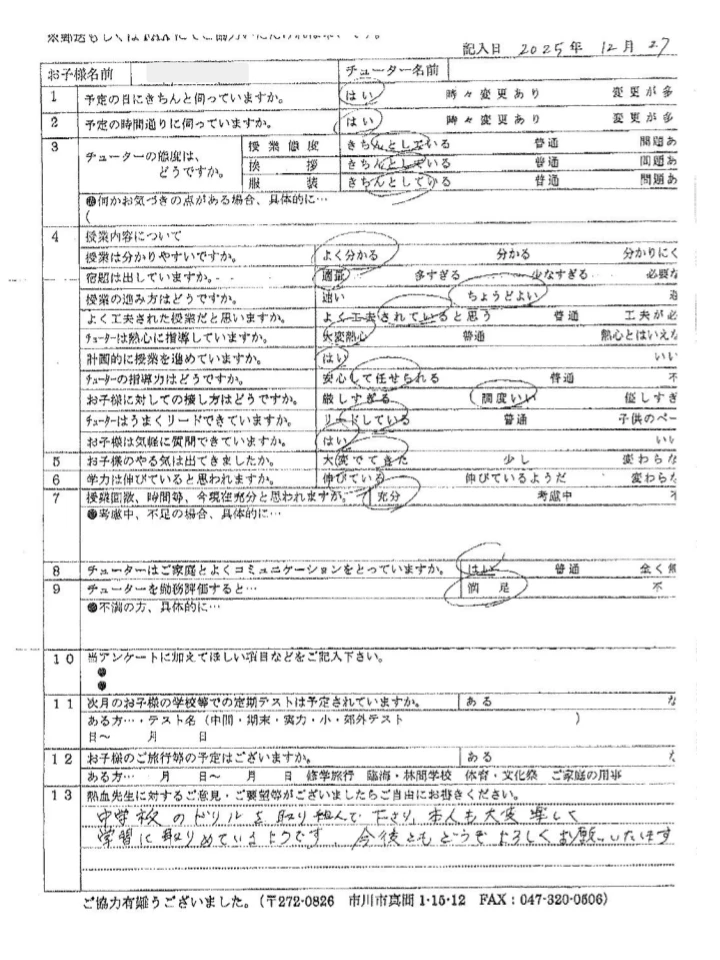 ※郵送もしくはFAXにてご協力いただければ幸いです。
記入日 2025年 12月 27
お子様名前 チューター名前
1 予定の日にきちんと伺っていますか。 はい 時々変更あり 変更が多
2 予定の時間通りに伺っていますか。 はい 時々変更あり 変更が多
3 チューターの態度は、どうですか。 授業態度 きちんとしている 普通 問題あ
挨拶 きちんとしている 普通 問題あ
服装 きちんとしている 普通 問題あ
●何かお気づきの点がある場合、具体的に…
(
4 授業内容について
授業は分かりやすいですか。 よく分かる 分かる 分かりにく
宿題は出していますか。 適量 多すぎる 少なすぎる 必要な
授業の進み方はどうですか。 速い ちょうどよい 遅
よく工夫された授業だと思いますか。 よく工夫されていると思う 普通 工夫が必
チューターは熱心に指導していますか。 大変熱心 普通 熱心とはいえな
計画的に授業を進めていますか。 はい いい
チューターの指導力はどうですか。 安心して任せられる 普通 不
お子様に対しての接し方はどうですか。 厳しすぎる 調度いい 優しすぎ
チューターはうまくリードできていますか。 リードしている 普通 子供のペー
お子様は気軽に質問できていますか。 はい いい
5 お子様のやる気は出てきましたか。 大変でてきた 少し 変わらな
6 学力は伸びていると思われますか。 伸びている 伸びているようだ 変わらな
7 授業回数、時間等、今現在充分と思われますか。 充分 考慮中 不
●考慮中、不足の場合、具体的に…
8 チューターはご家庭とよくコミュニケーションをとっていますか。 はい 普通 全く無
9 チューターを勤務評価すると… 満足 不
●不満の方、具体的に…
10 当アンケートに加えてほしい項目などをご記入下さい。
●
●
11 次月のお子様の学校等での定期テストは予定されていますか。 ある な
ある方…・テスト名（中間・期末・実力・小・郊外テスト ）
日～ 月 日
12 お子様のご旅行等の予定はございますか。 ある な
ある方… 月 日～ 月 日 修学旅行 臨海・林間学校 体育・文化祭 ご家庭の用事
13 熱血先生に対するご意見・ご要望等がございましたらご自由にお書きください。
中学校のドリルを取り組んで下さり、本人も大変楽しく
学習に取りめているようです。今後ともどうぞよろしくお願いいたします
ご協力有難うございました。（〒272-0826 市川市真間1-15-12 FAX：047-320-0506）